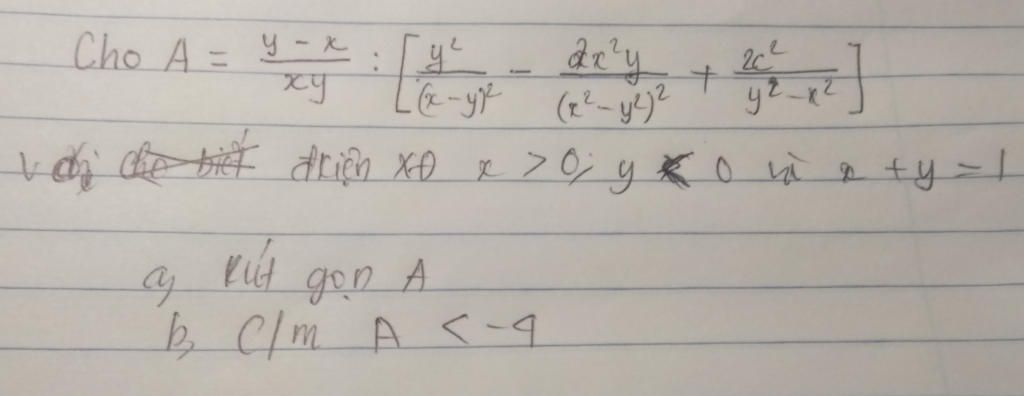 Cho A = \frac{y - x}{xy} : \left[ \frac{y^2}{(x-y)^2} - \frac{2x^2y}{(x^2-y^2)^2} + \frac{x^2}{y^2-x^2} \right]
với đkiện XĐ x > 0; y < 0 và x + y = 1
a, Rút gọn A
b, C/m A < -4